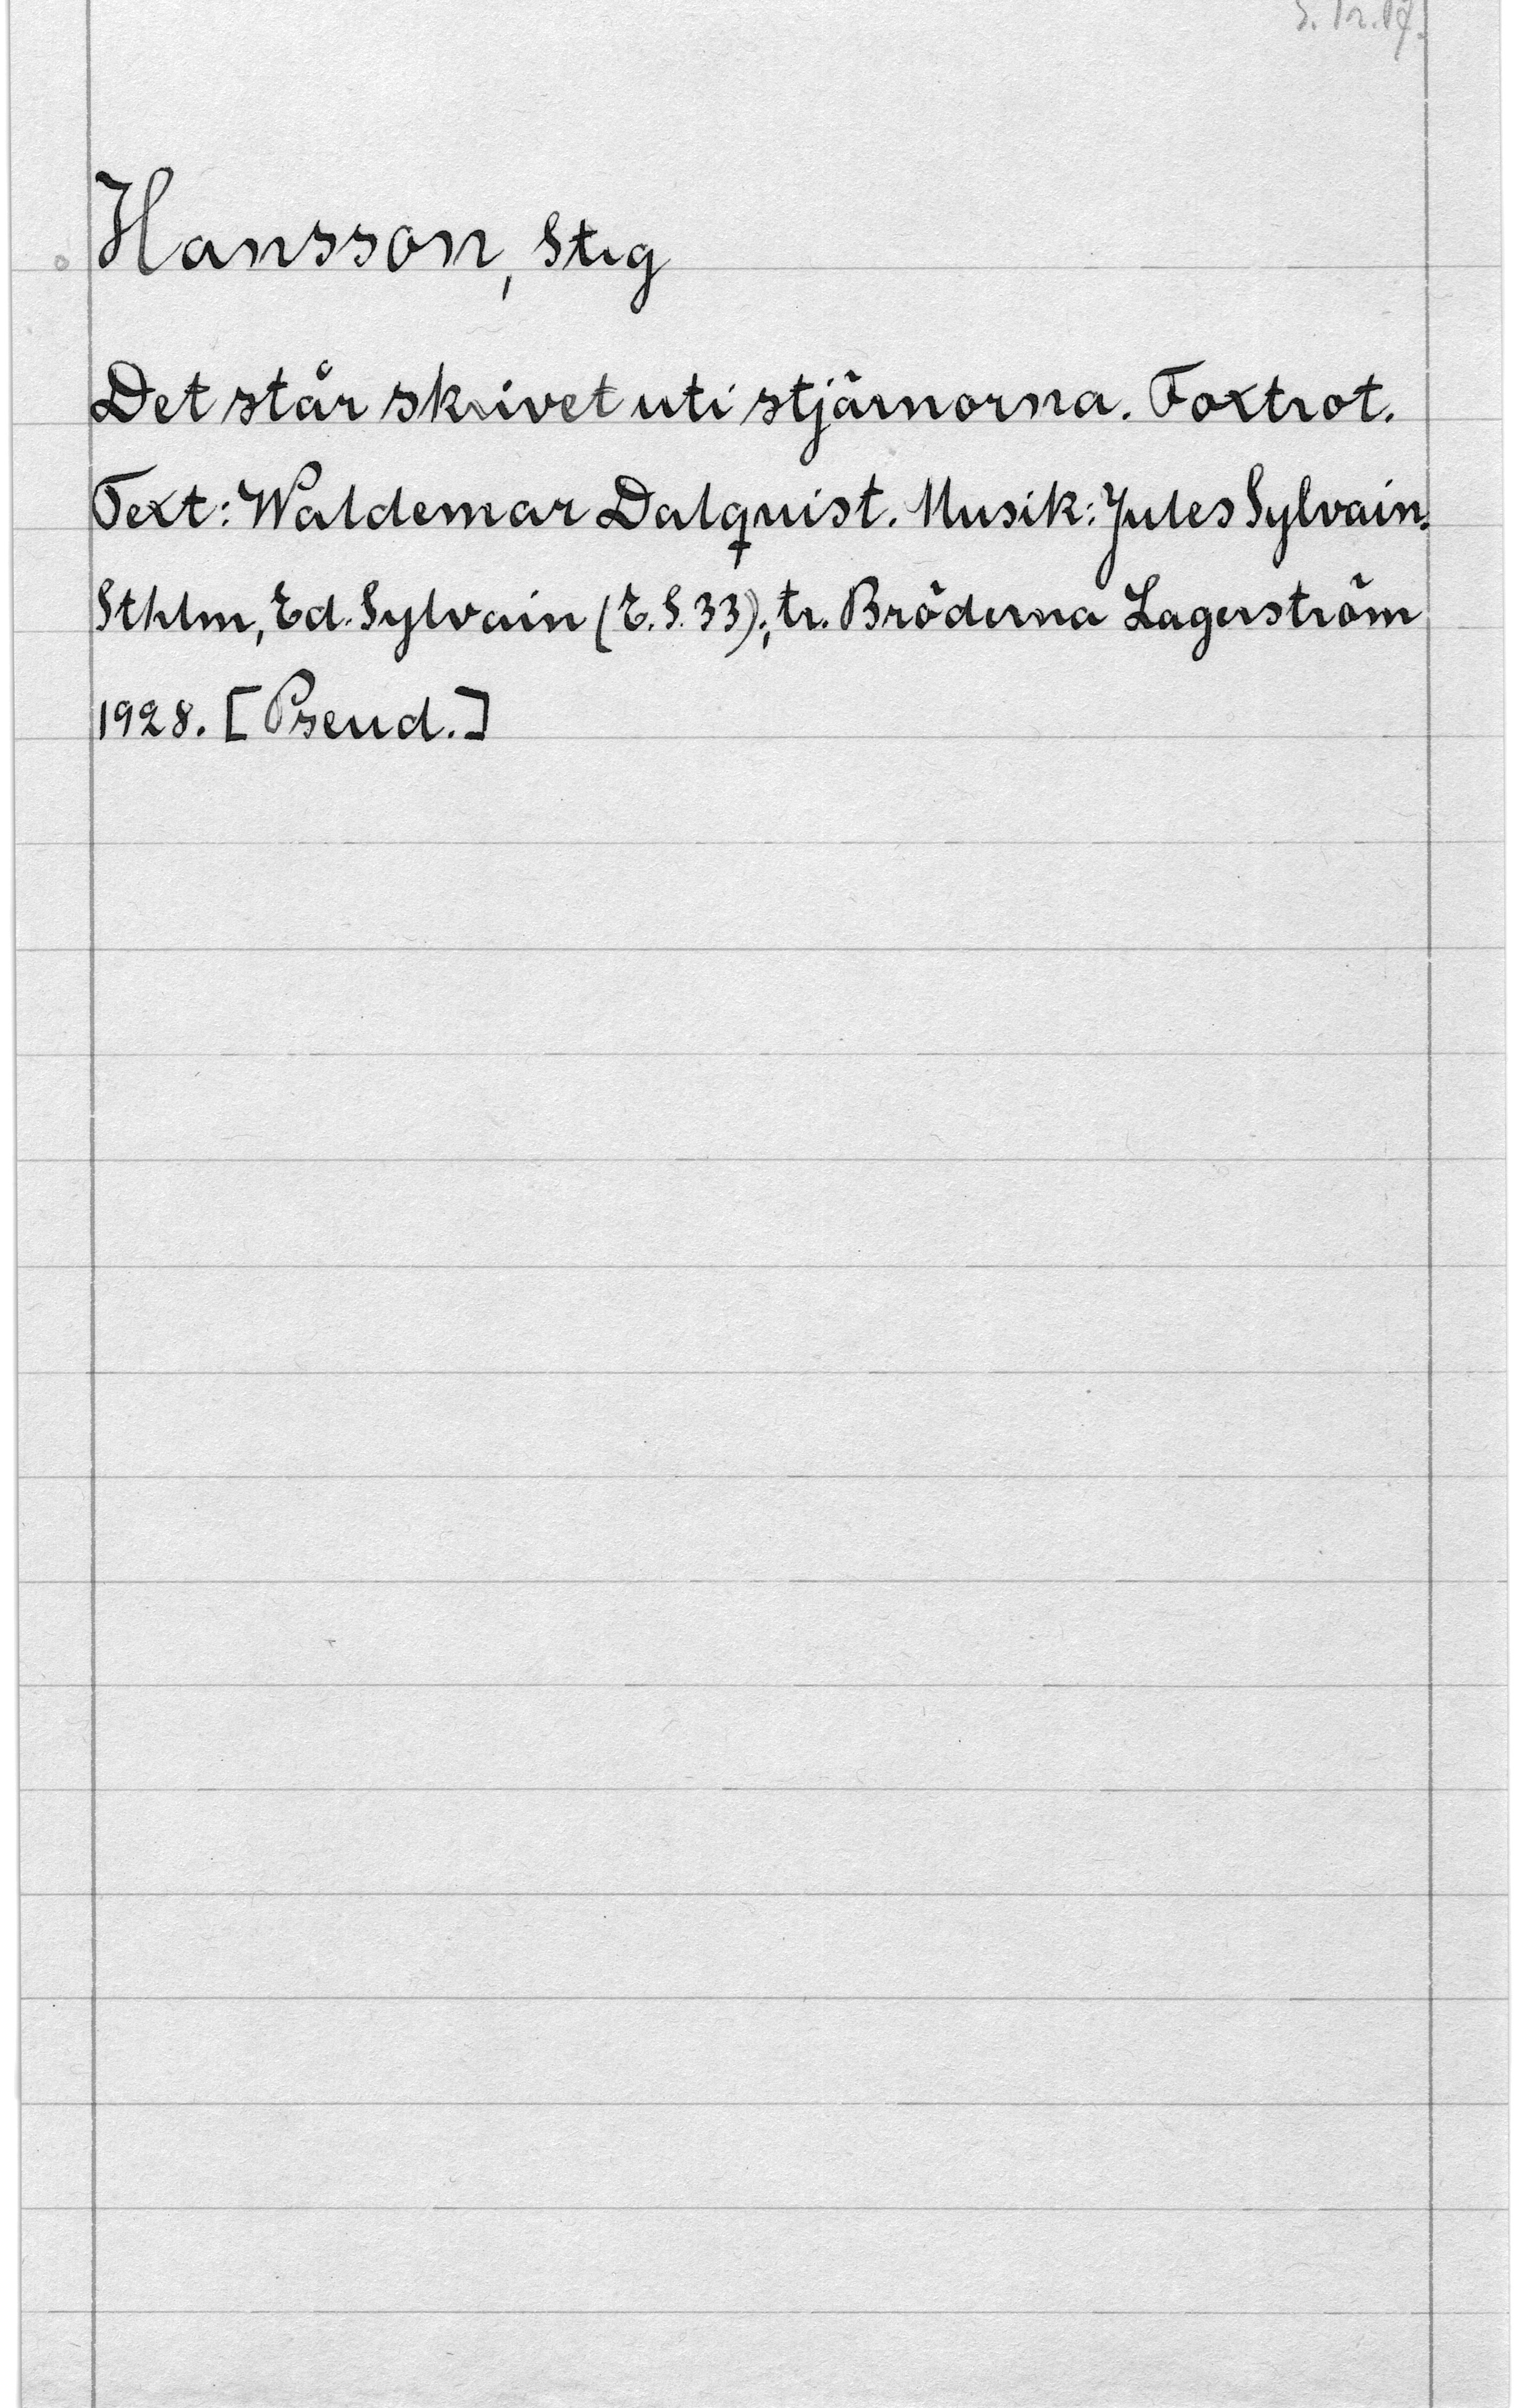 S. Tr. 17.
Hansson, Stig
Det står skrivet uti stjärnorna. Foxtrot.
Text: Waldemar Dalquist. Musik: Jules Sylvain.
Sthlm, Ed. Sylvain (E.S. 33); tr. Bröderna Lagerström
1928. [Pseud.]